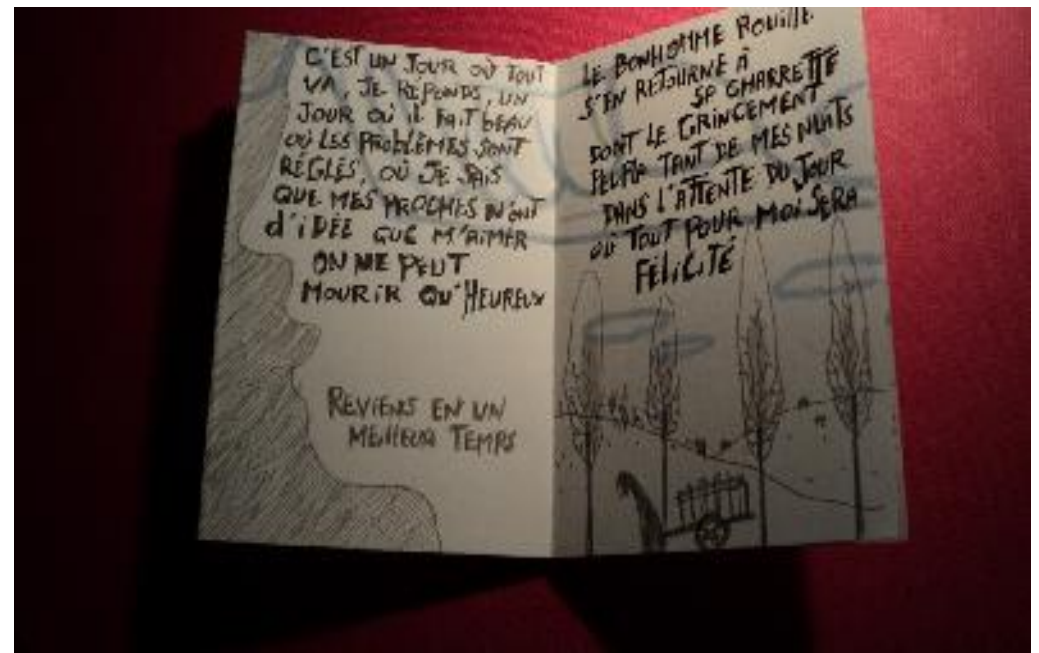 C'EST UN JOUR OÙ TOUT
VA, JE RÉPONDS, UN
JOUR OÙ IL FAIT BEAU
OÙ LES PROBLÈMES SONT
RÉGLÉS, OÙ JE SAIS
QUE MES PROCHES N'ONT
d'IDÉE QUE M'AIMER
ON NE PEUT
MOURIR QU'HEUREUX
REVIENS EN UN
MEILLEUR TEMPS
LE BONHOMME ROUILLE
S'EN RETOURNE À
SA CHARRETTE
DONT LE GRINCEMENT
PEUPLA TANT DE MES NUITS
DANS L'ATTENTE DU JOUR
OÙ TOUT POUR MOI SERA
FÉLICITÉ